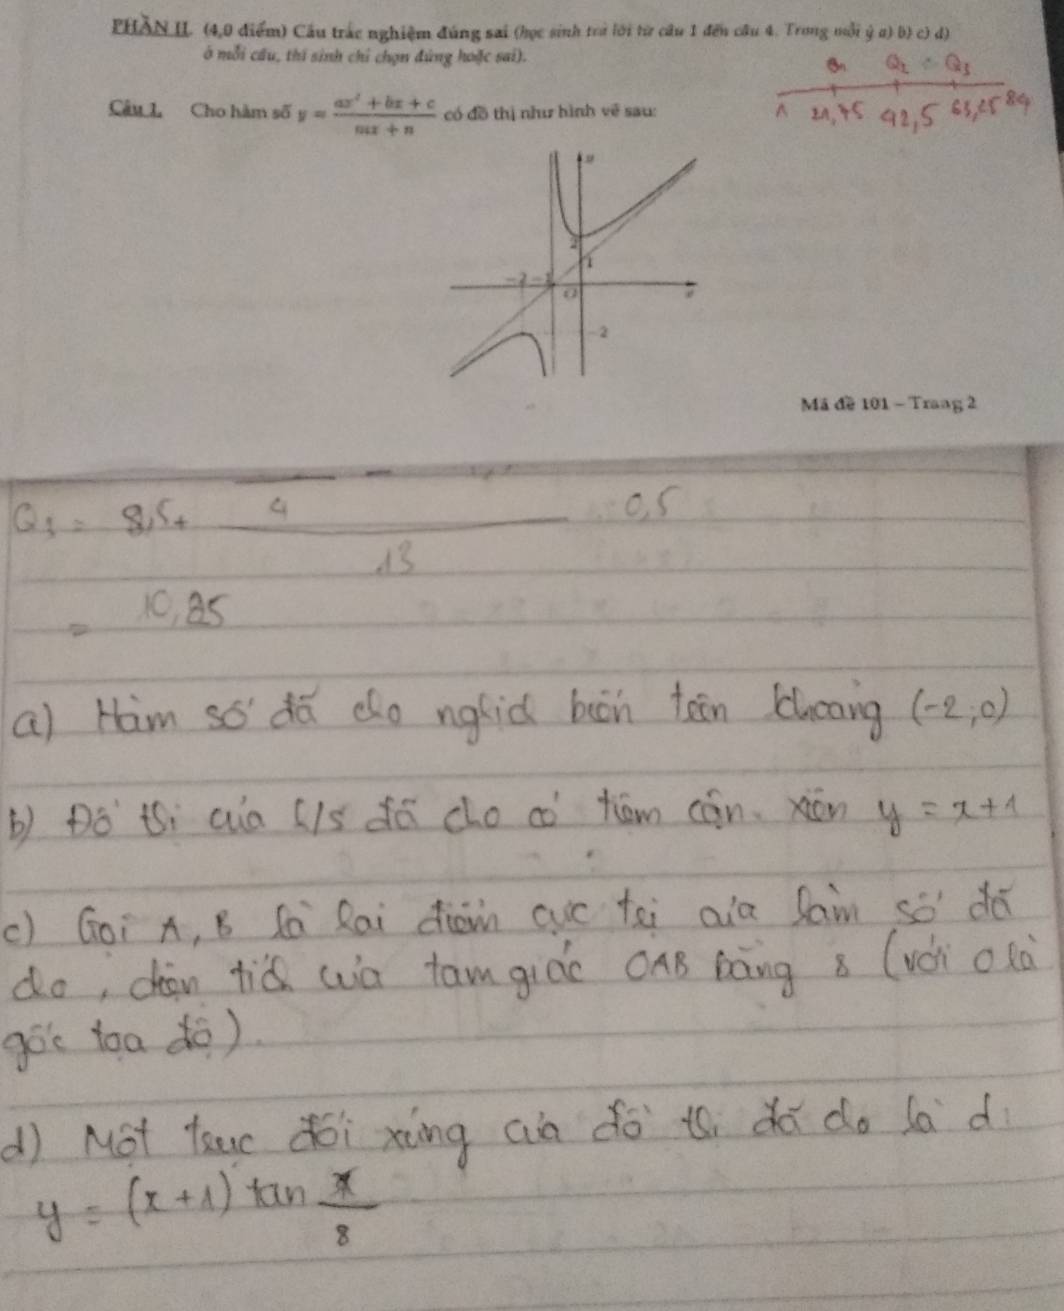 PHẦN II. (4,0 điểm) Câu trắc nghiệm đúng sai (học sinh trả lời từ câu 1 đến câu 4. Trong mỗi ý a) b) c) d)
ở mỗi câu, thí sinh chỉ chọn đúng hoặc sai).
Q₂ Q₃
1 21,75 42,5 63,25 84
Câu 1. Cho hàm số y = (ax² + bx + c)/(mx + n) có đồ thị như hình vẽ sau:
y
2
1
-2 -1
O x
-2
Mã đề 101 - Traang 2
= 8,5 + 4 0,5
13
= 10,25
a) Hàm số đã cho nghịch biến trên khoảng (-2;0)
b) Đồ thị của h/s đã cho có tiệm cận xiên y = x+1
c) Gọi A, B là hai điểm cực trị của hàm số đã
cho, diện tích của tam giác OAB bằng 8 (với O là
gốc tọa độ).
d) Một trục đối xứng của đồ thị đã cho là d:
y = (x+1) tan π/8